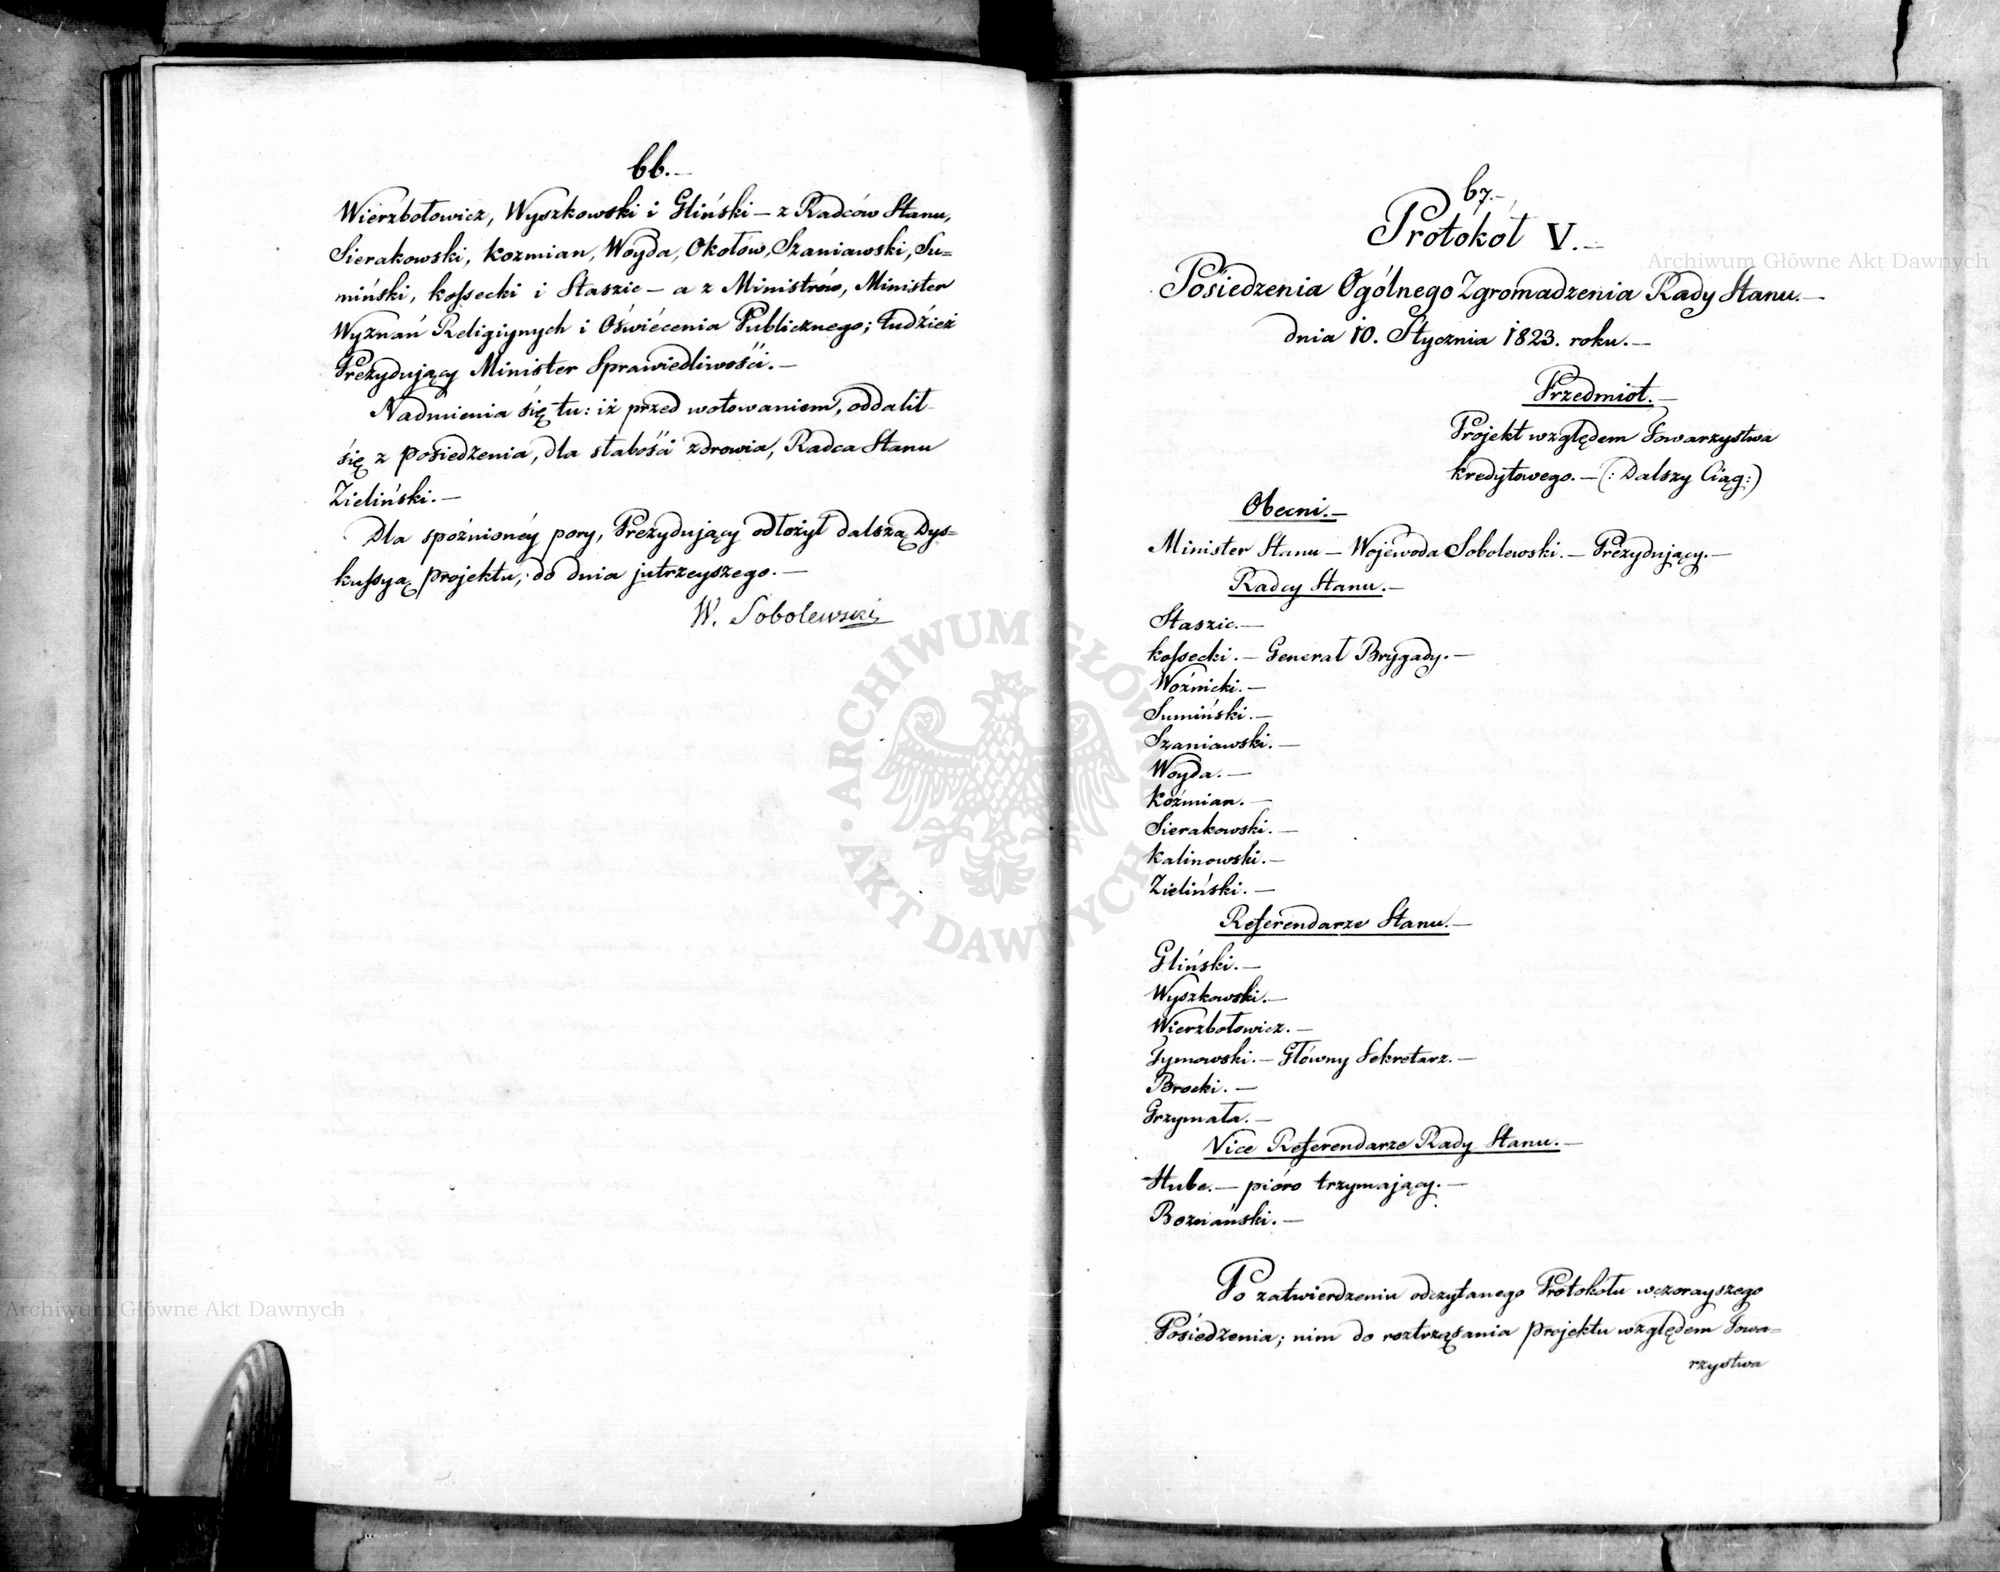 66.–
Wierzbołowicz, Wyszkowski i Gliński – z Radców Stanu,
Sierakowski, Kozmian, Woyda, Okołów, Szaniawski, Su=
miński, Kossecki i Staszic – a z Ministrów, Minister
Wyznań Religiynych i Oświécenia Publicznego; tudzież
Prezydujący Minister Sprawiedliwości. –
Nadmienia się tu: iż przed wotowaniem, oddalił
się z posiedzenia, dla słabości zdrowia, Radca Stanu
Zieliński. –
Dla spóźnionéy pory, Prezydujący odłożył dalszą Dys=
kussyą projektu, do dnia jutrzeyszego. –
W. Sobolewski
67.–
Protokół V.–
Posiedzenia Ogólnego Zgromadzenia Rady Stanu. –
dnia 10. Stycznia 1823. roku. –
Przedmiot. –
Projekt względem Towarzystwa
kredytowego. – (: Dalszy Ciąg :)
Obecni. –
Minister Stanu – Wojewoda Sobolewski. – Prezydujący. –
Radcy Stanu. –
Staszic. –
Kossecki. – Generał Brygady. –
Woźnicki. –
Sumiński. –
Szaniawski. –
Woyda. –
Koźmian. –
Sierakowski. –
Kalinowski. –
Zieliński. –
Referendarze Stanu. –
Gliński. –
Wyszkowski. –
Wierzbołowicz. –
Tymowski. – Główny Sekretarz. –
Brocki. –
Grzymała. –
Vice Referendarze Rady Stanu. –
Hube. – pióro trzymający. –
Boznański. –
Po zatwierdzeniu odczytanego Protokołu wczorayszego
Posiedzenia; nim do roztrząsania projektu względem Towa=
rzystwa
Archiwum Główne Akt Dawnych
Archiwum Główne Akt Dawnych
ARCHIWUM GŁÓWNE AKT DAWNYCH